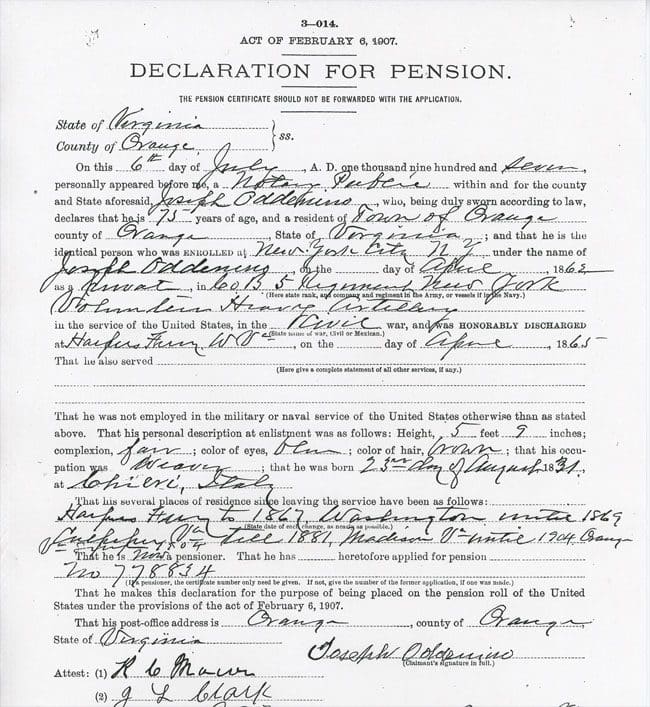 3—014.
ACT OF FEBRUARY 6, 1907.
DECLARATION FOR PENSION.
THE PENSION CERTIFICATE SHOULD NOT BE FORWARDED WITH THE APPLICATION.
State of Virginia
County of Orange } ss.
On this 6th day of July, A. D. one thousand nine hundred and seven,
personally appeared before me, a Notary Public within and for the county
and State aforesaid, Joseph Oddenino, who, being duly sworn according to law,
declares that he is 75 years of age, and a resident of Town of Orange
county of Orange, State of Virginia; and that he is the
identical person who was ENROLLED at New York City N Y under the name of
Joseph Oddenino, on the day of April, 1862
as a Privat, in Co B 5 Regiment New York
(Here state rank, and company and regiment in the Army, or vessels if in the Navy.)
Volunteer Heavy Artillery
in the service of the United States, in the Civil war, and was HONORABLY DISCHARGED
(State name of war, Civil or Mexican.)
at Harpers Ferry W Va, on the day of April, 1865
That he also served
(Here give a complete statement of all other services, if any.)
That he was not employed in the military or naval service of the United States otherwise than as stated
above. That his personal description at enlistment was as follows: Height, 5 feet 9 inches;
complexion, fair; color of eyes, ; color of hair, brown; that his occu-
pation was Weaver; that he was born 23rd day of August 1831.
at Chieri, Italy
That his several places of residence since leaving the service have been as follows:
Harpers Ferry to 1867, Washington until 1869
(State date of each change, as nearly as possible.)
Culpeper Va till 1881, Madison Va until 1904 Orange
That he is now a pensioner. That he has heretofore applied for pension
No 778834
(If a pensioner, the certificate number only need be given. If not, give the number of the former application, if one was made.)
That he makes this declaration for the purpose of being placed on the pension roll of the United
States under the provisions of the act of February 6, 1907.
That his post-office address is Orange, county of Orange
State of Virginia
Joseph Oddenino
(Claimant's signature in full.)
Attest: (1) R C
(2) J L Clark